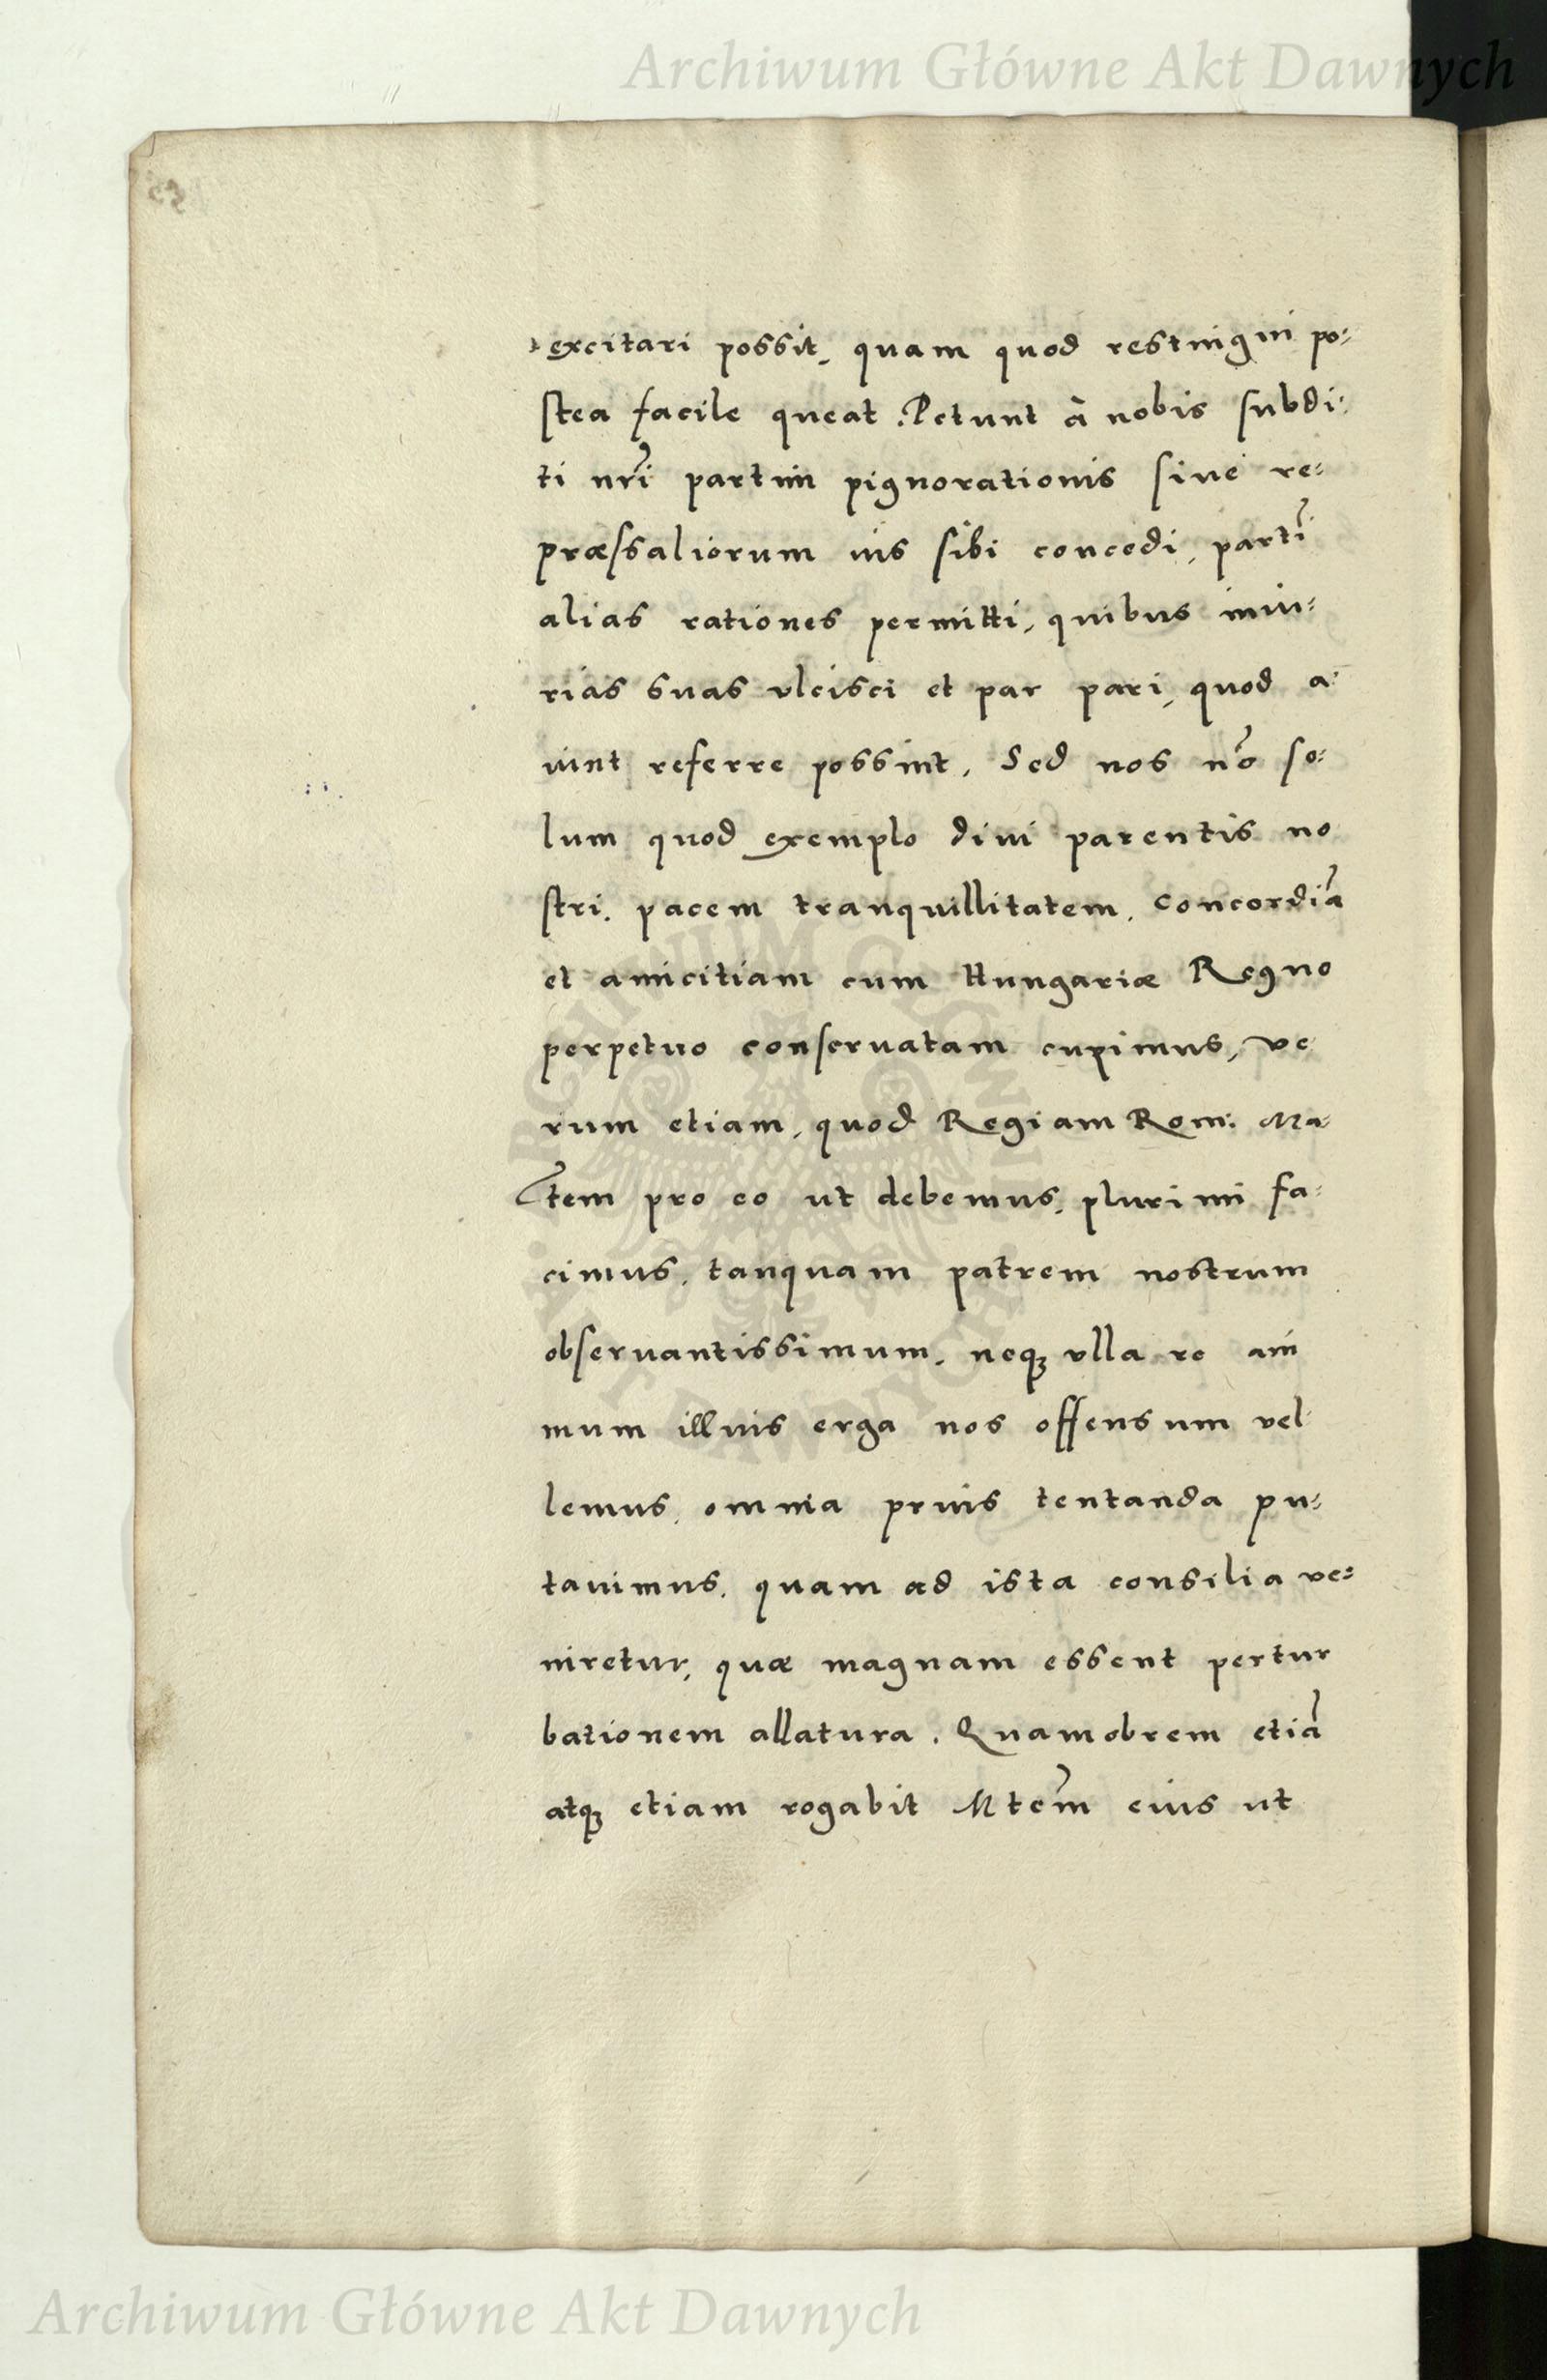 Archiwum Główne Akt Dawnych
excitari possit, quam quod restingui po:
stea facile queat. Petunt à nobis subdi:
ti nr̃i partim pignorationis siue re:
præssaliorum ius sibi concedi, parti͂
alias rationes permitti, quibus iniu:
rias suas vlcisci et par pari, quod a:
iunt referre possint. Sed nos nõ so:
lum quod exemplo diui parentis no
stri, pacem tranquillitatem, concordiã
et amicitiam cum Hungariæ Regno
perpetuo conseruatam cupimus, ve
rum etiam, quod Regiam Rom: Ma:
tem pro eo ut debemus, plurimi fa:
cimus, tanquam patrem nostrum
obseruantissimum, neqȝ vlla re ani
mum illius erga nos offensum vel
lemus, omnia prius tentanda pu:
tauimus, quam ad ista consilia ve:
niretur, quæ magnam essent pertur
bationem allatura. Quamobrem etiã
atqȝ etiam rogabit Mtem̃ eius ut
Archiwum Główne Akt Dawnych